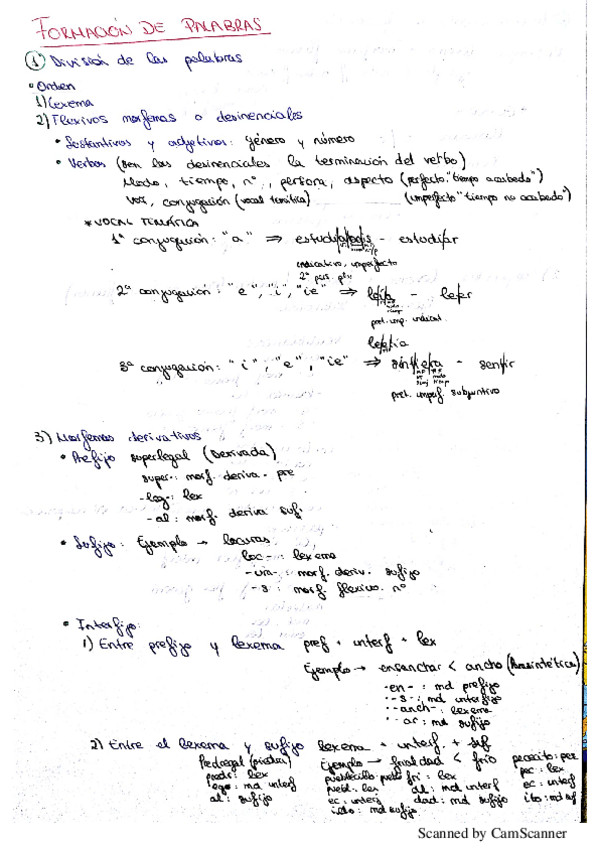 FORMACIÓN DE PALABRAS
1º División de las palabras
• Orden
1) Lexema
2) Flexivos morfemas o desinenciales
• Sustantivos y adjetivos: género y número
• Verbos (son las desinenciales la terminación del verbo)
Modo, tiempo, nº, persona, aspecto (perfecto "tiempo acabado")
voz, conjugación (vocal temática) (imperfecto "tiempo no acabado")
* VOCAL TEMÁTICA
1ª conjugación: "a" ⇒ - estudiar
indicativo, imperfecto
2ª pers. plu
2ª conjugación: "e", "i", "ie" ⇒ leía - leer
pret. imp. indicat.
3ª conjugación: "i", "e", "ie" ⇒ sintiera - sentir
pret. imperf. subjuntivo
3) Morfemas derivativos
• Prefijo superlegal (Derivada)
super-: morf. deriva. pre
-leg-: lex
-al: morf. deriva suf.
• Sufijo: Ejemplo → locuras
loc-: lexema
-ura-: morf. deriv. sufijo
-s: morf. flexivo. nº
• Interfijo:
1) Entre prefijo y lexema pref + interf + lex
Ejemplo → ensanchar < ancho (Parasintética)
-en-: md prefijo
-s-: md interfijo
-anch-: lexema
-ar: md sufijo
2) Entre el lexema y sufijo lexema + interf. + suf
Pedregal (piedra) Ejemplo → frialdad < frío pececito: pez
pedr: lex fri: lex pec: lex
eg: md interf al: md interf ec: interf
al: sufijo ec: interf dad: md sufijo ito: md suf
illo: md sufijo
Scanned by CamScanner